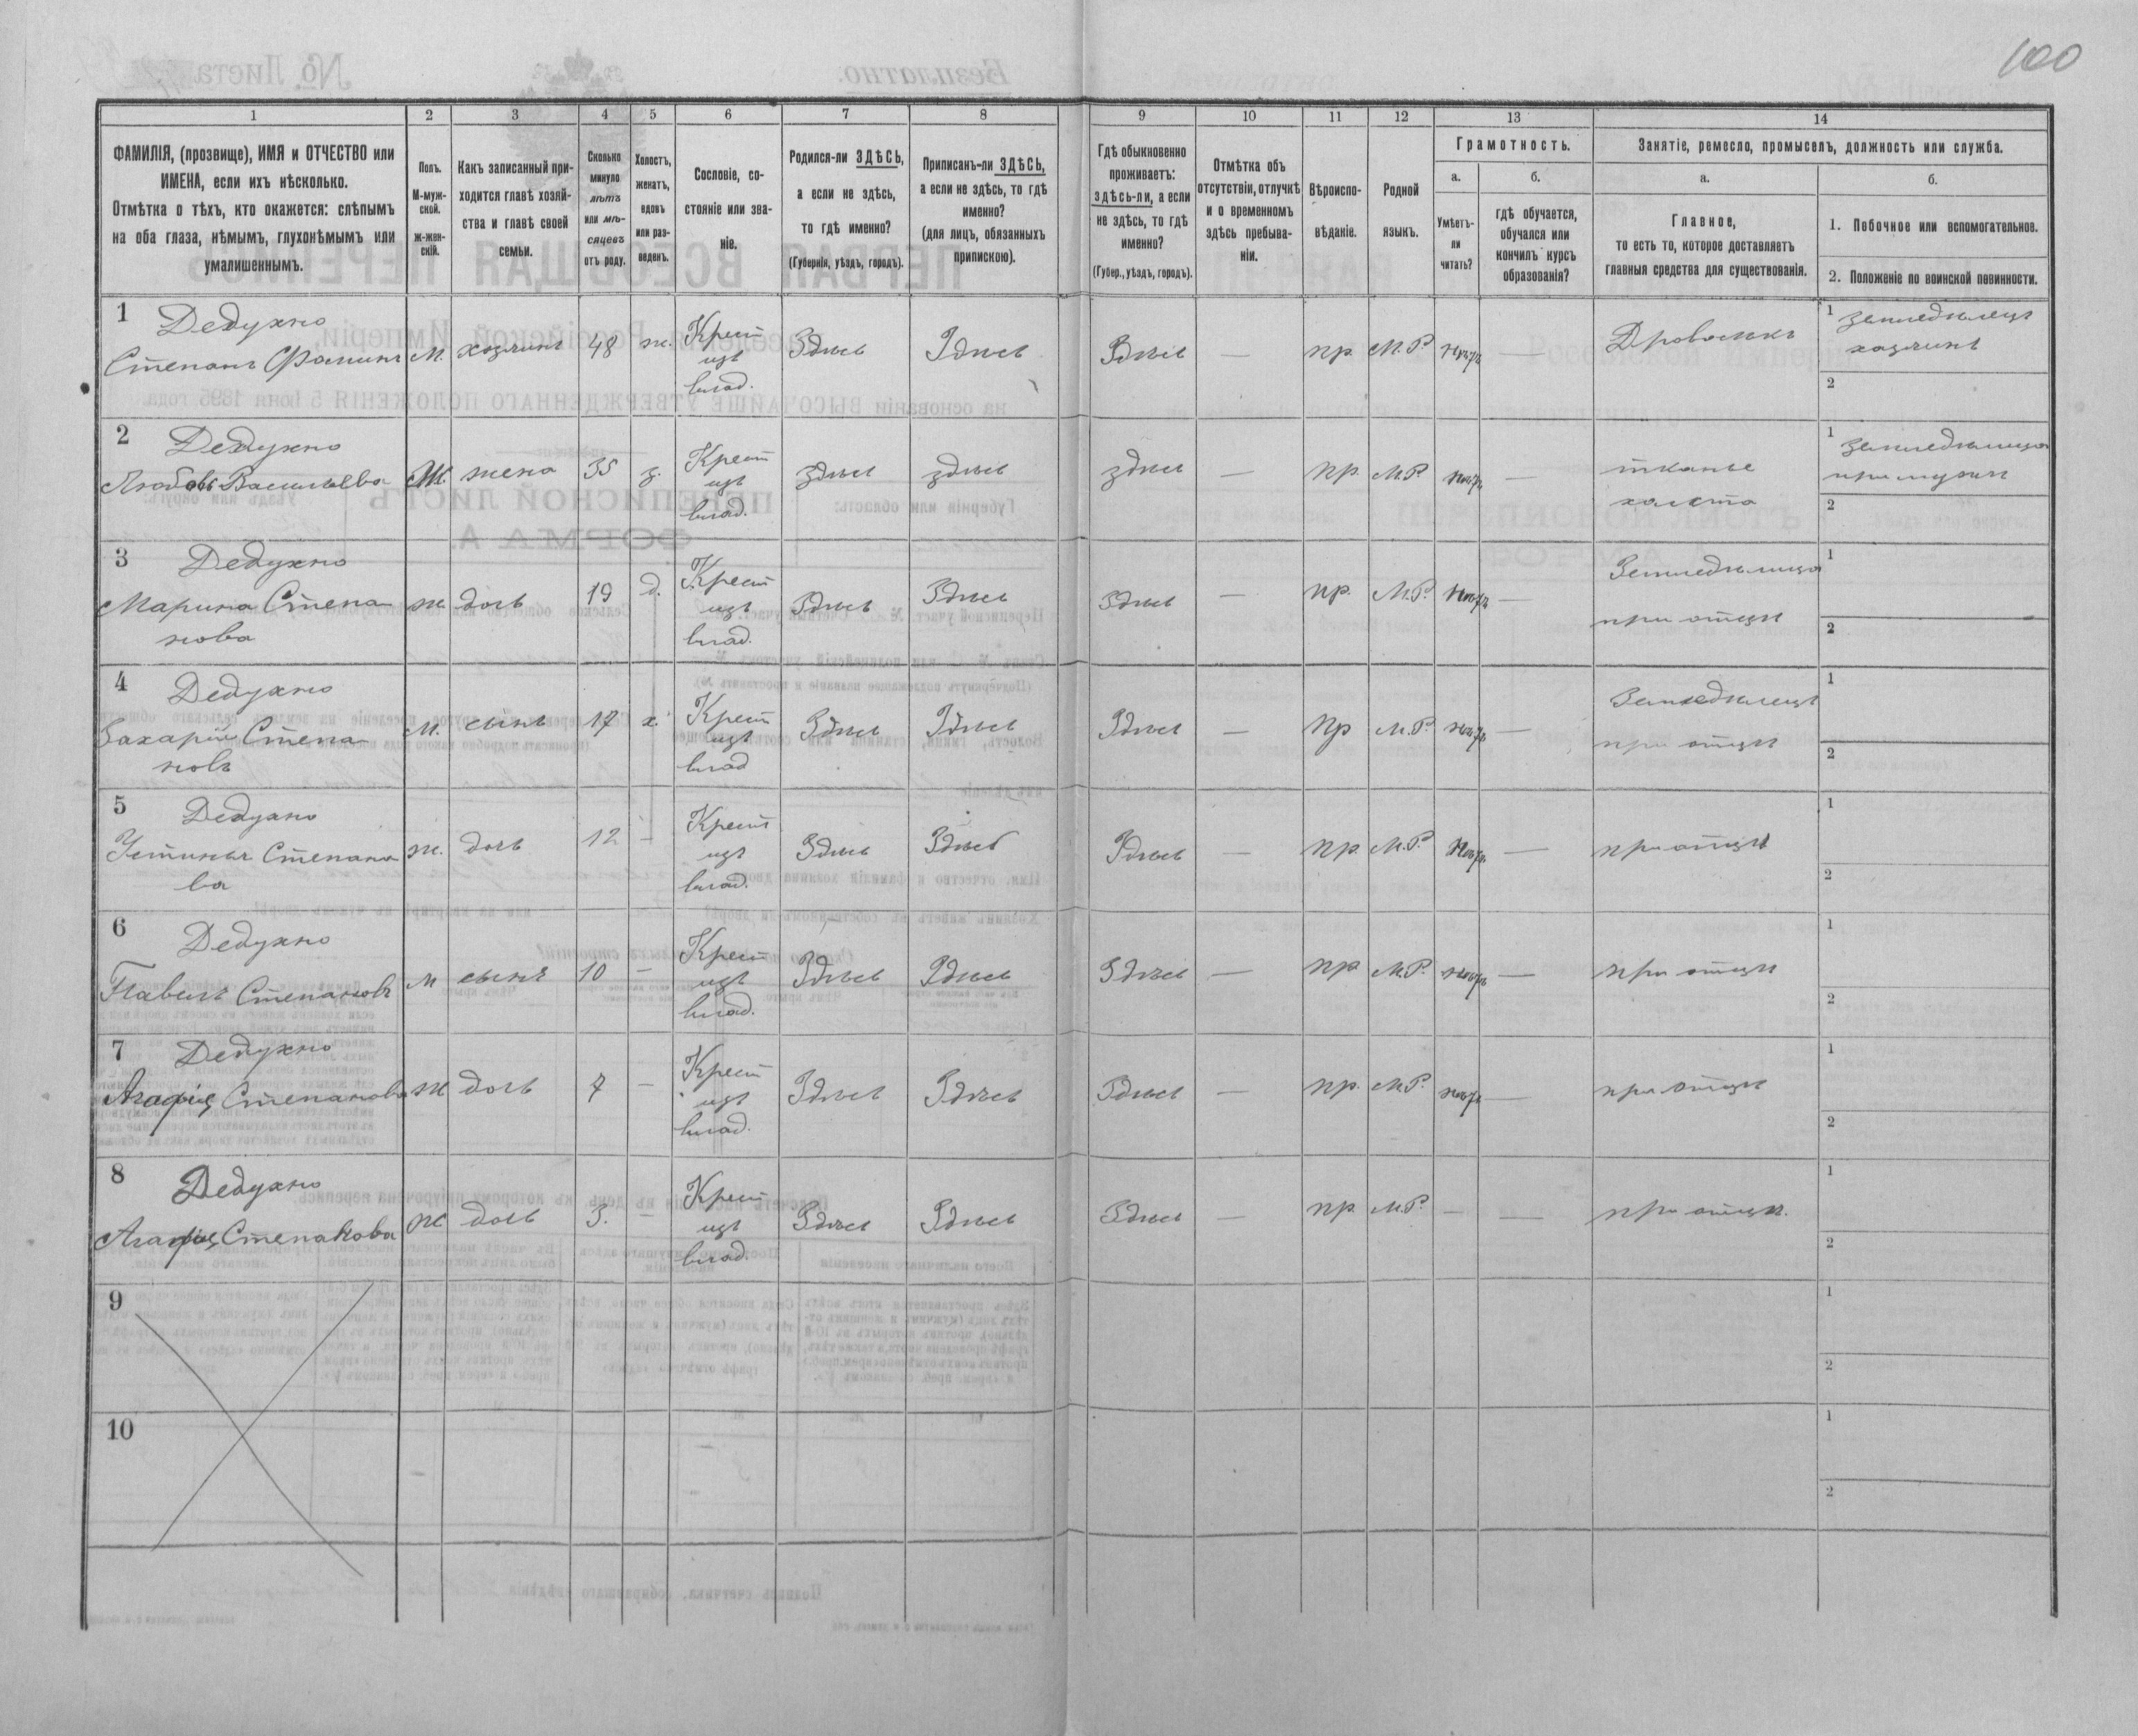 100
1 2 3 4 5 6 7 8 9 10 11 12 13 14
ФАМИЛІЯ, (прозвище), ИМЯ и ОТЧЕСТВО или
ИМЕНА, если ихъ нѣсколько.
Отмѣтка о тѣхъ, кто окажется: слѣпымъ
на оба глаза, нѣмымъ, глухонѣмымъ или
умалишеннымъ.
Полъ.
М-муж-
ской.
ж-жен-
скій.
Какъ записанный при-
ходится главѣ хозяй-
ства и главѣ своей
семьи.
Сколько
минуло
лѣтъ
или мѣ-
сяцевъ
отъ роду.
Холостъ,
женатъ,
вдовъ
или раз-
веденъ.
Сословіе, со-
стояніе или зва-
ніе.
Родился-ли ЗДѢСЬ,
а если не здѣсь,
то гдѣ именно?
(Губернія, уѣздъ, городъ).
Приписанъ-ли ЗДѢСЬ,
а если не здѣсь, то гдѣ
именно?
(для лицъ, обязанныхъ
припискою).
Гдѣ обыкновенно
проживаетъ:
здѣсь-ли, а если
не здѣсь, то гдѣ
именно?
(Губер., уѣздъ, городъ).
Отмѣтка объ
отсутствіи, отлучкѣ
и о временномъ
здѣсь пребыва-
ніи.
Вѣроиспо-
вѣданіе.
Родной
языкъ.
Грамотность.
а.
Умѣетъ-
ли
читать?
б.
гдѣ обучается,
обучался или
кончилъ курсъ
образованія?
Занятіе, ремесло, промыселъ, должность или служба.
а.
Главное,
то есть то, которое доставляетъ
главныя средства для существованія.
б.
1. Побочное или вспомогательное.
2. Положеніе по воинской повинности.
1 Дедухно
Степанъ Фоминъ М. хозяинъ 48 ж. Крест
изъ
влад. Здѣсь Здѣсь Здѣсь — пр. М.Р. нѣтъ — Дровосѣкъ 1 Земледѣлецъ
хозяинъ
2
2 Дедухно
Любовь Васильева Ж. жена 35 з. Крест
изъ
влад. здѣсь здѣсь здѣсь — пр. М.Р. нѣтъ — тканье
холста 1 Земледѣлица
при мужѣ
2
3 Дедухно
Марина Степа-
нова ж дочь 19 д. Крест
изъ
влад. Здѣсь Здѣсь Здѣсь пр. М.Р. нѣтъ — Земледѣлица
при отцѣ 1
2
4 Дедухно
Захарій Степа-
новъ М. сынъ 17 х. Крест
изъ
влад Здѣсь Здѣсь Здѣсь — пр М.Р. нѣтъ — Земледѣлецъ
при отцѣ 1
2
5 Дедухно
Устинья Степано
ва ж. дочь 12 — Крест
изъ
влад. Здѣсь Здѣсь Здѣсь — пр. М.Р. нѣтъ — при отцѣ 1
2
6 Дедухно
Павелъ Степановъ М сынъ 10 — Крест
изъ
влад. Здѣсь Здѣсь Здѣсь — пр М.Р. нѣтъ — при отцѣ 1
2
7 Дедухно
Агафія Степанова ж дочь 7 — Крест
изъ
влад. Здѣсь Здѣсь Здѣсь — пр. М.Р. нѣтъ — при отцѣ 1
2
8 Дедухно
Степанова ж дочь 3. — Крест
изъ
влад. Здѣсь Здѣсь Здѣсь — пр. М.Р. — — при отцѣ. 1
2
9 1
2
10 1
2